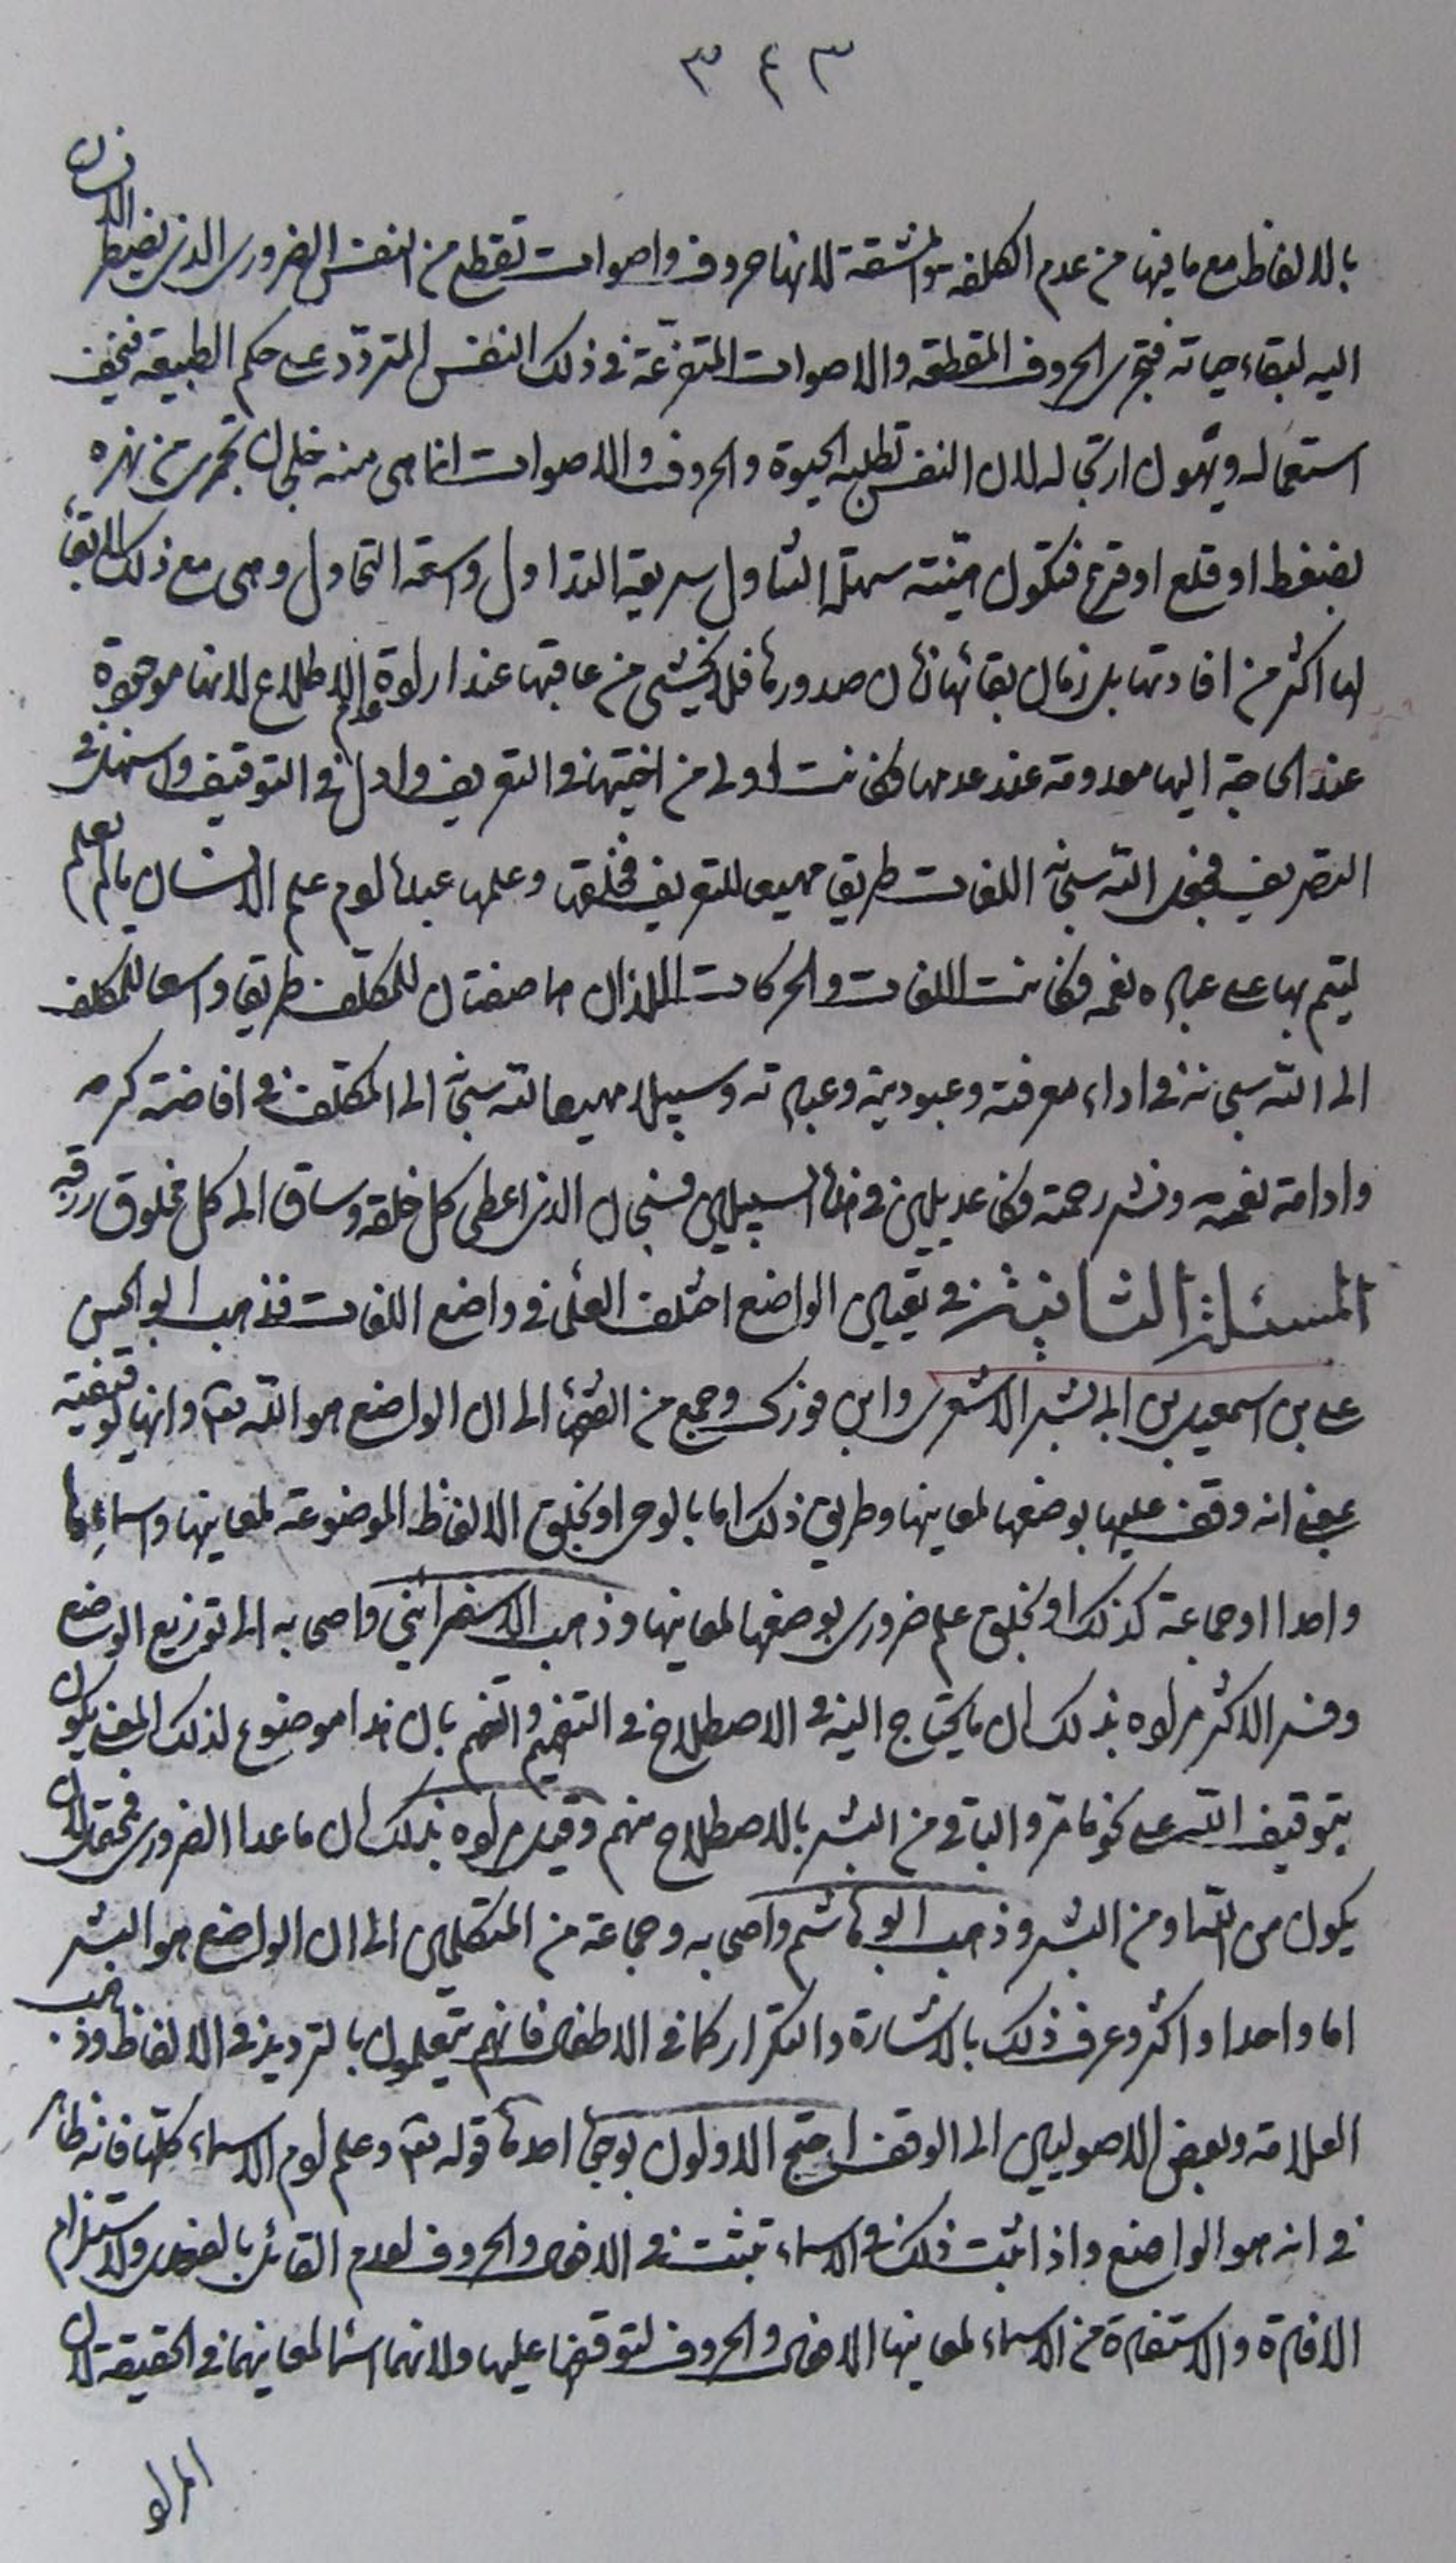 ٣٤٣
بالالفاظ مع ما فيها من عدم الكلفة والمشقة لانها حروف واصوات تقطع من النفس الضروري الذي يضطر الانسان
اليه لبقاء حياته فتجري الحروف المقطعة والاصوات المتفرعة في ذلك النفس المتردد على حكم الطبيعة فيخف
استعماله ويهون ارتجاله لان النفس تطلبه الحيوة والحروف والاصوات انما هي منه خلجان تجري من نهره
بضغط او قلع او قرع فتكون هينة سهلة التناول سريعة التداول واسعة التحاول وهي مع ذلك لا بقاء
لها اكثر من افادتها بل زمان بقائها زمان صدورها فلا يخشى من عاقبتها عند ارادة عدم الاطلاع لانها موجودة
عند الحاجة اليها معدومة عند عدمها فكانت اولى من اختيها في التعريف وادل في التوقيف واسهل في
التصريف فجعل الله سبحانه اللغات طريقا مهيعا للتعريف فخلقها وعلمها عباده ادم علم الانسان ما لم يعلم
ليتم بها على عباده نعمه فكانت اللغات والحركات اللذان هما صفتان للمكلف طريقا واسعا للمكلف
الى الله سبحانه في اداء معرفته وعبوديته وعبادته وسبيلا مهيعا لله سبحانه الى المكلف في افاضة كرمه
وادامة نعمه ونشر رحمته فكانا عديلين في هذا السبيلين فسبحان الذي اعطى كل خلقه وساق الى كل مخلوق رزقه
المسئلة الثانية في تعيين الواضع اختلف العلماء في واضع اللغات فذهب ابو الحسن
علي بن اسمعيل بن ابي بشر الاشعري وابن فورك وجمع من الفقهاء الى ان الواضع هو الله تعالى وانها توقيفية
بمعنى انه وقف عليها بوضعها لمعانيها وطريق ذلك اما بالوحي او بخلق الالفاظ الموضوعة لمعانيها واسماعها
واحدا او جماعة كذلك او بخلق علم ضروري بوضعها لمعانيها وذهب الاسفرائني واصحابه الى توزيع الوضع
وفسر الاكثر مراده بذلك ان ما يحتاج اليه في الاصطلاح في التفهيم والتفهم بان هذا موضوع لذلك المعنى يكون
بتوقيف الله على نحو ما مر والباقي من البشر بالاصطلاح منهم وقيل مراده بذلك ان ما عدا الضروري محتمل لان
يكون من الله او من البشر وذهب ابو هاشم واصحابه وجماعة من المتكلمين الى ان الواضع هو البشر
اما واحدا او اكثر وعرف ذلك بالاشارة والتكرار كما في الاطفال فانهم يتعلمون بالترديد في الالفاظ وذهب
العلامة وبعض الاصوليين الى الوقف احتج الاولون بوجوه احدها قوله تعالى وعلم ادم الاسماء كلها فانه ظاهر
في انه هو الواضع واذا ثبت ذلك في الاسماء ثبت في الافعال والحروف لعدم القائل بالفصل ولاستلزام
الافادة والاستفادة من الاسماء لمعانيها الافعال والحروف لتوقفها عليها ولانهما اسماء لمعانيهما في الحقيقة لان
المراد